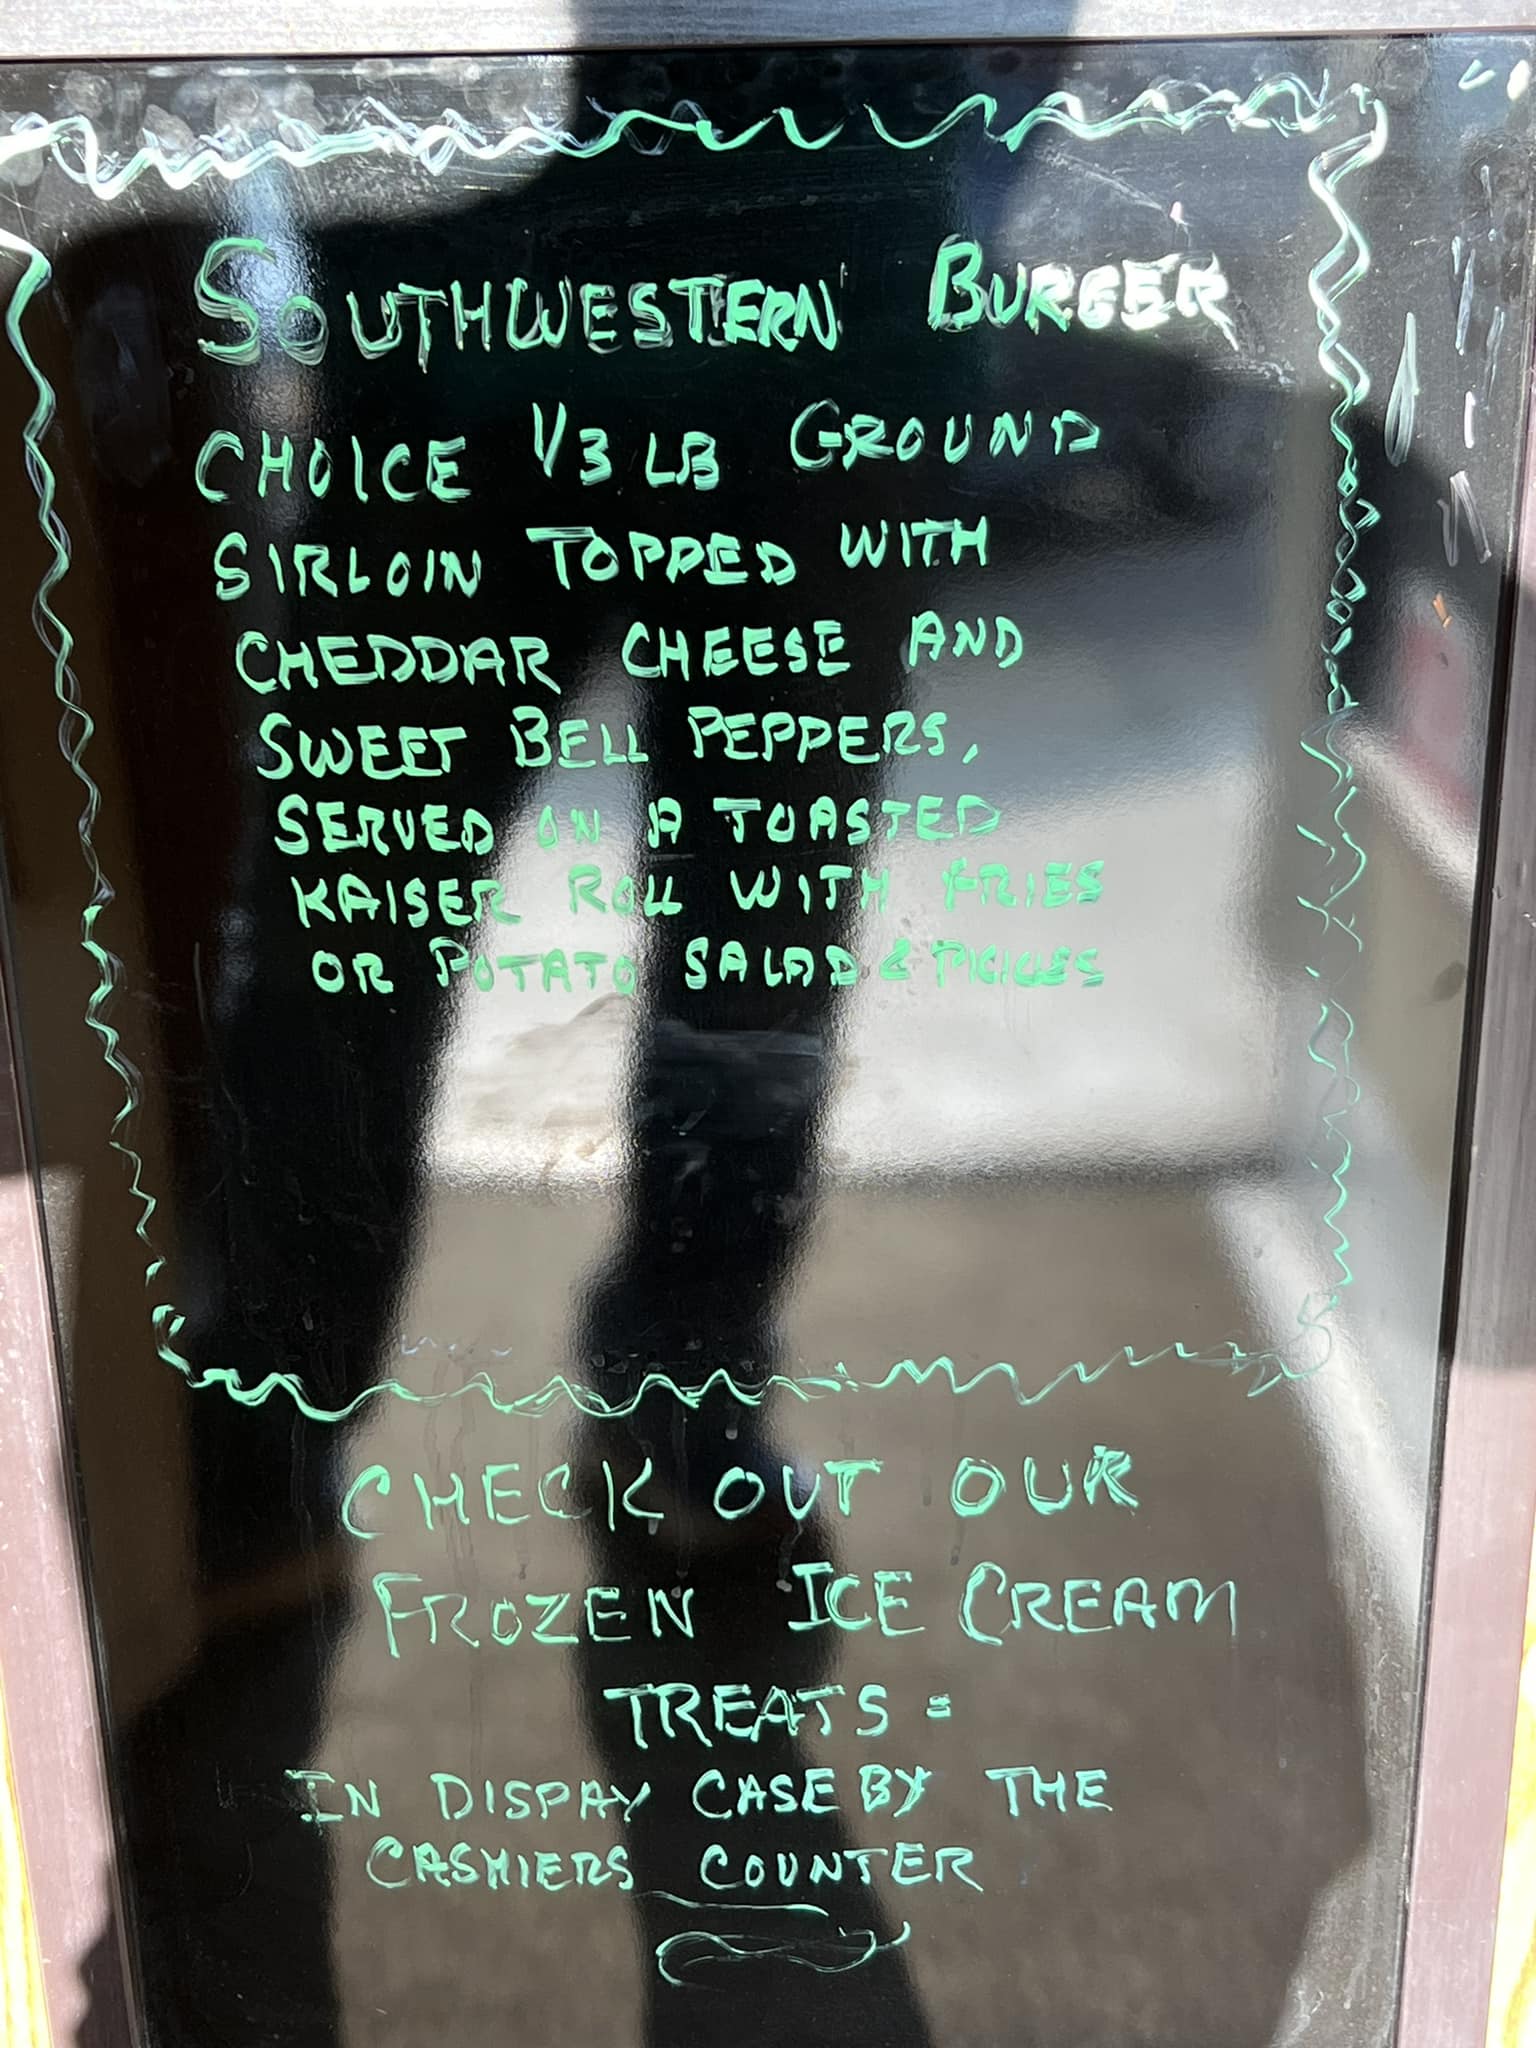 SOUTHWESTERN BURGER
CHOICE 1/3 LB GROUND
SIRLOIN TOPPED WITH
CHEDDAR CHEESE AND
SWEET BELL PEPPERS,
SERVED ON A TOASTED
KAISER ROLL WITH FRIES
OR POTATO SALAD & PICKLES
CHECK OUT OUR
FROZEN ICE CREAM
TREATS =
IN DISPAY CASE BY THE
CASHIERS COUNTER